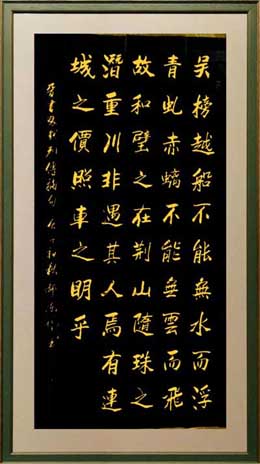 吴榜越船不能無水而浮
青虬赤螭不能無雲而飛
故和璧之在荆山隨珠之
潛重川非遇其人焉有連
城之價照車之明乎
晉書 列傳摘句